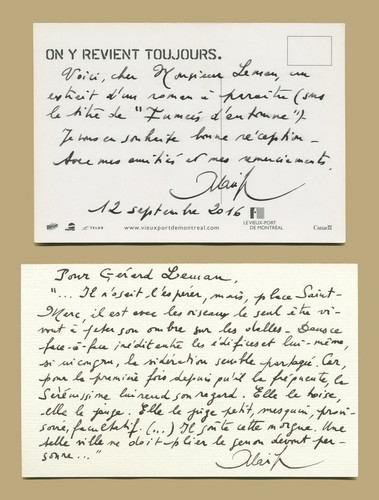 ON Y REVIENT TOUJOURS.
Voici, cher Monsieur Leman, un
extrait d'un roman à paraître (sous
le titre de "Fumées d'automne").
Je vous en souhaite bonne réception –
Avec mes amitiés et mes remerciements.
12 septembre 2016
TELUS www.vieuxportdemontreal.com LE VIEUX-PORT
DE MONTRÉAL Canada
Pour Gérard Leman,
"... Il n'osait l'espérer, mais, place Saint-
Marc, il est avec les oiseaux le seul être vi-
vant à jeter son ombre sur les dalles – Dans ce
face-à-face inédit entre les édifices et lui-même,
si incongru, la sidération semble partagée. Car,
pour la première fois depuis qu'il la fréquente, la
Sérénissime lui rend son regard. Elle le toise,
elle le jauge. Elle le juge petit, mesquin, provi-
soire, facultatif. (...) Il goûte cette morgue. Une
telle ville ne doit plier le genou devant per-
sonne..."